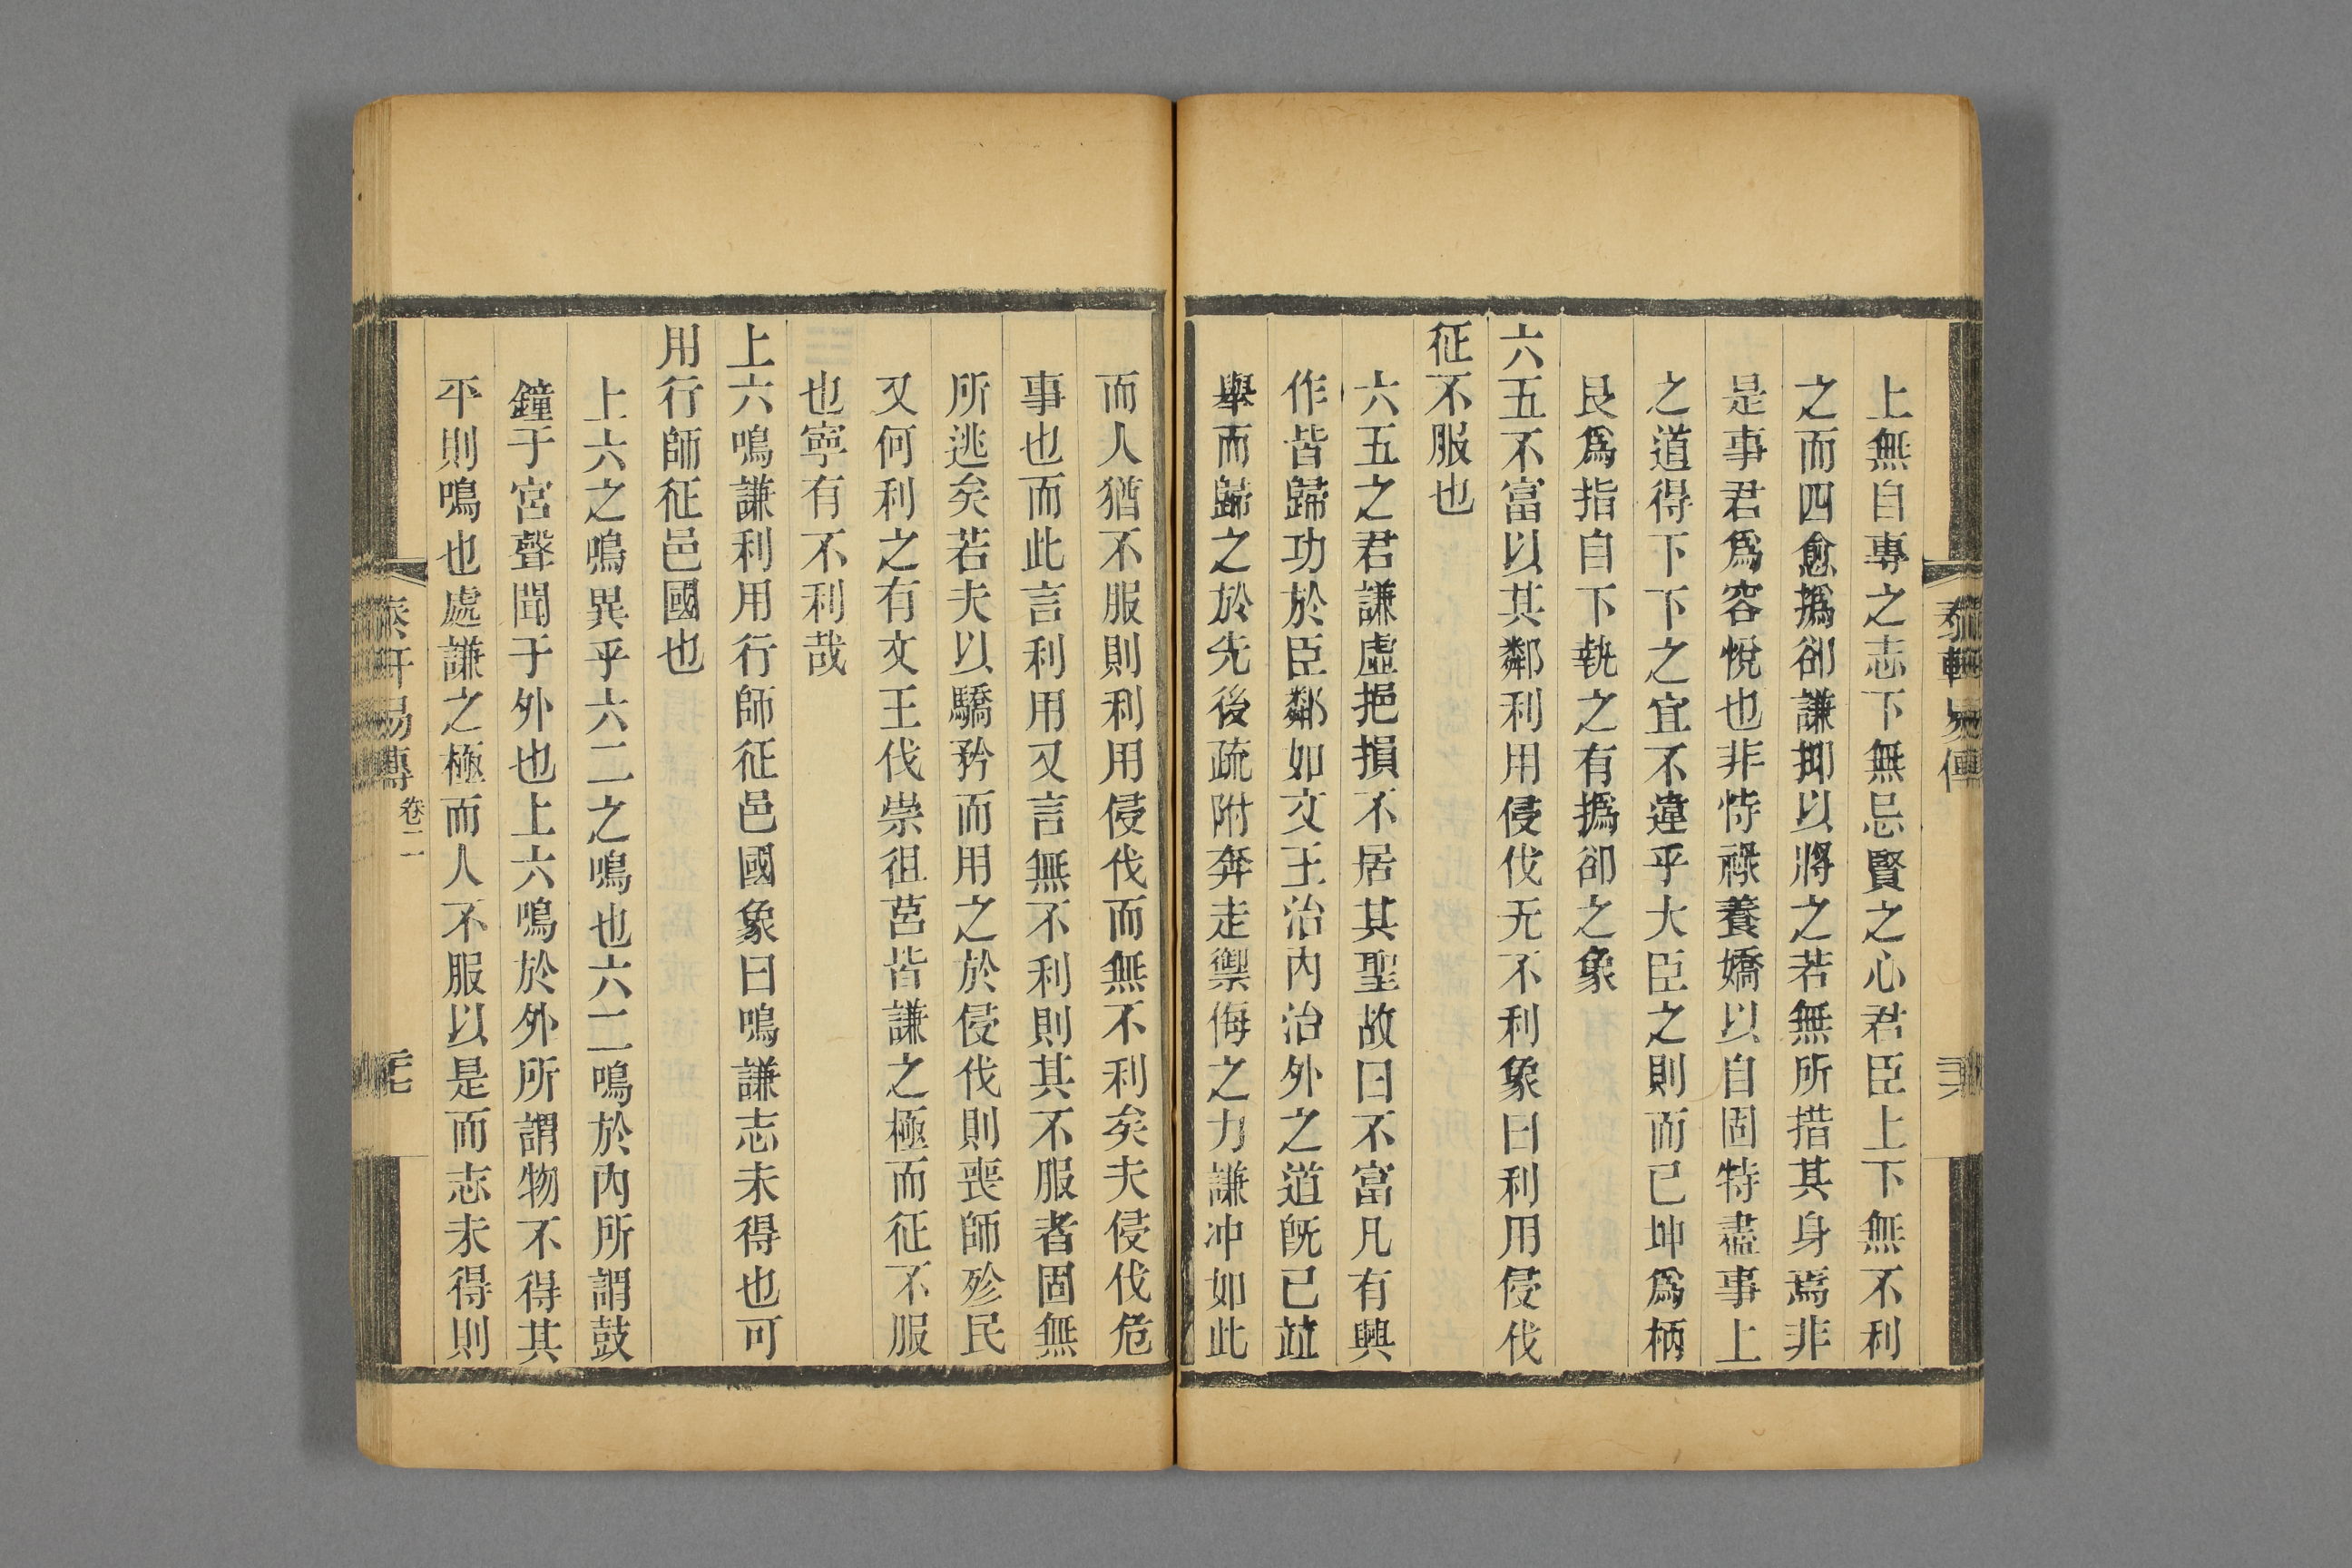 上無自專之志下無忌賢之心君臣上下無不利
之而四愈撝卻謙抑以將之若無所措其身焉非
是事君爲容悅也非恃祿養嬌以自固特盡事上
之道得下下之宜不違乎大臣之則而已坤爲柄
艮爲指自下執之有撝卻之象
六五不富以其鄰利用侵伐无不利象曰利用侵伐
征不服也
六五之君謙虛挹損不居其聖故曰不富凡有興
作皆歸功於臣鄰如文王治內治外之道旣已竝
舉而歸之於先後疏附奔走禦侮之力謙冲如此
而人猶不服則利用侵伐而無不利矣夫侵伐危
事也而此言利用又言無不利則其不服者固無
所逃矣若夫以驕矜而用之於侵伐則喪師殄民
又何利之有文王伐崇徂莒皆謙之極而征不服
也寧有不利哉
上六鳴謙利用行師征邑國象曰鳴謙志未得也可
用行師征邑國也
上六之鳴異乎六二之鳴也六二鳴於內所謂鼓
鐘于宮聲聞于外也上六鳴於外所謂物不得其
平則鳴也處謙之極而人不服以是而志未得則
易傳
卷二